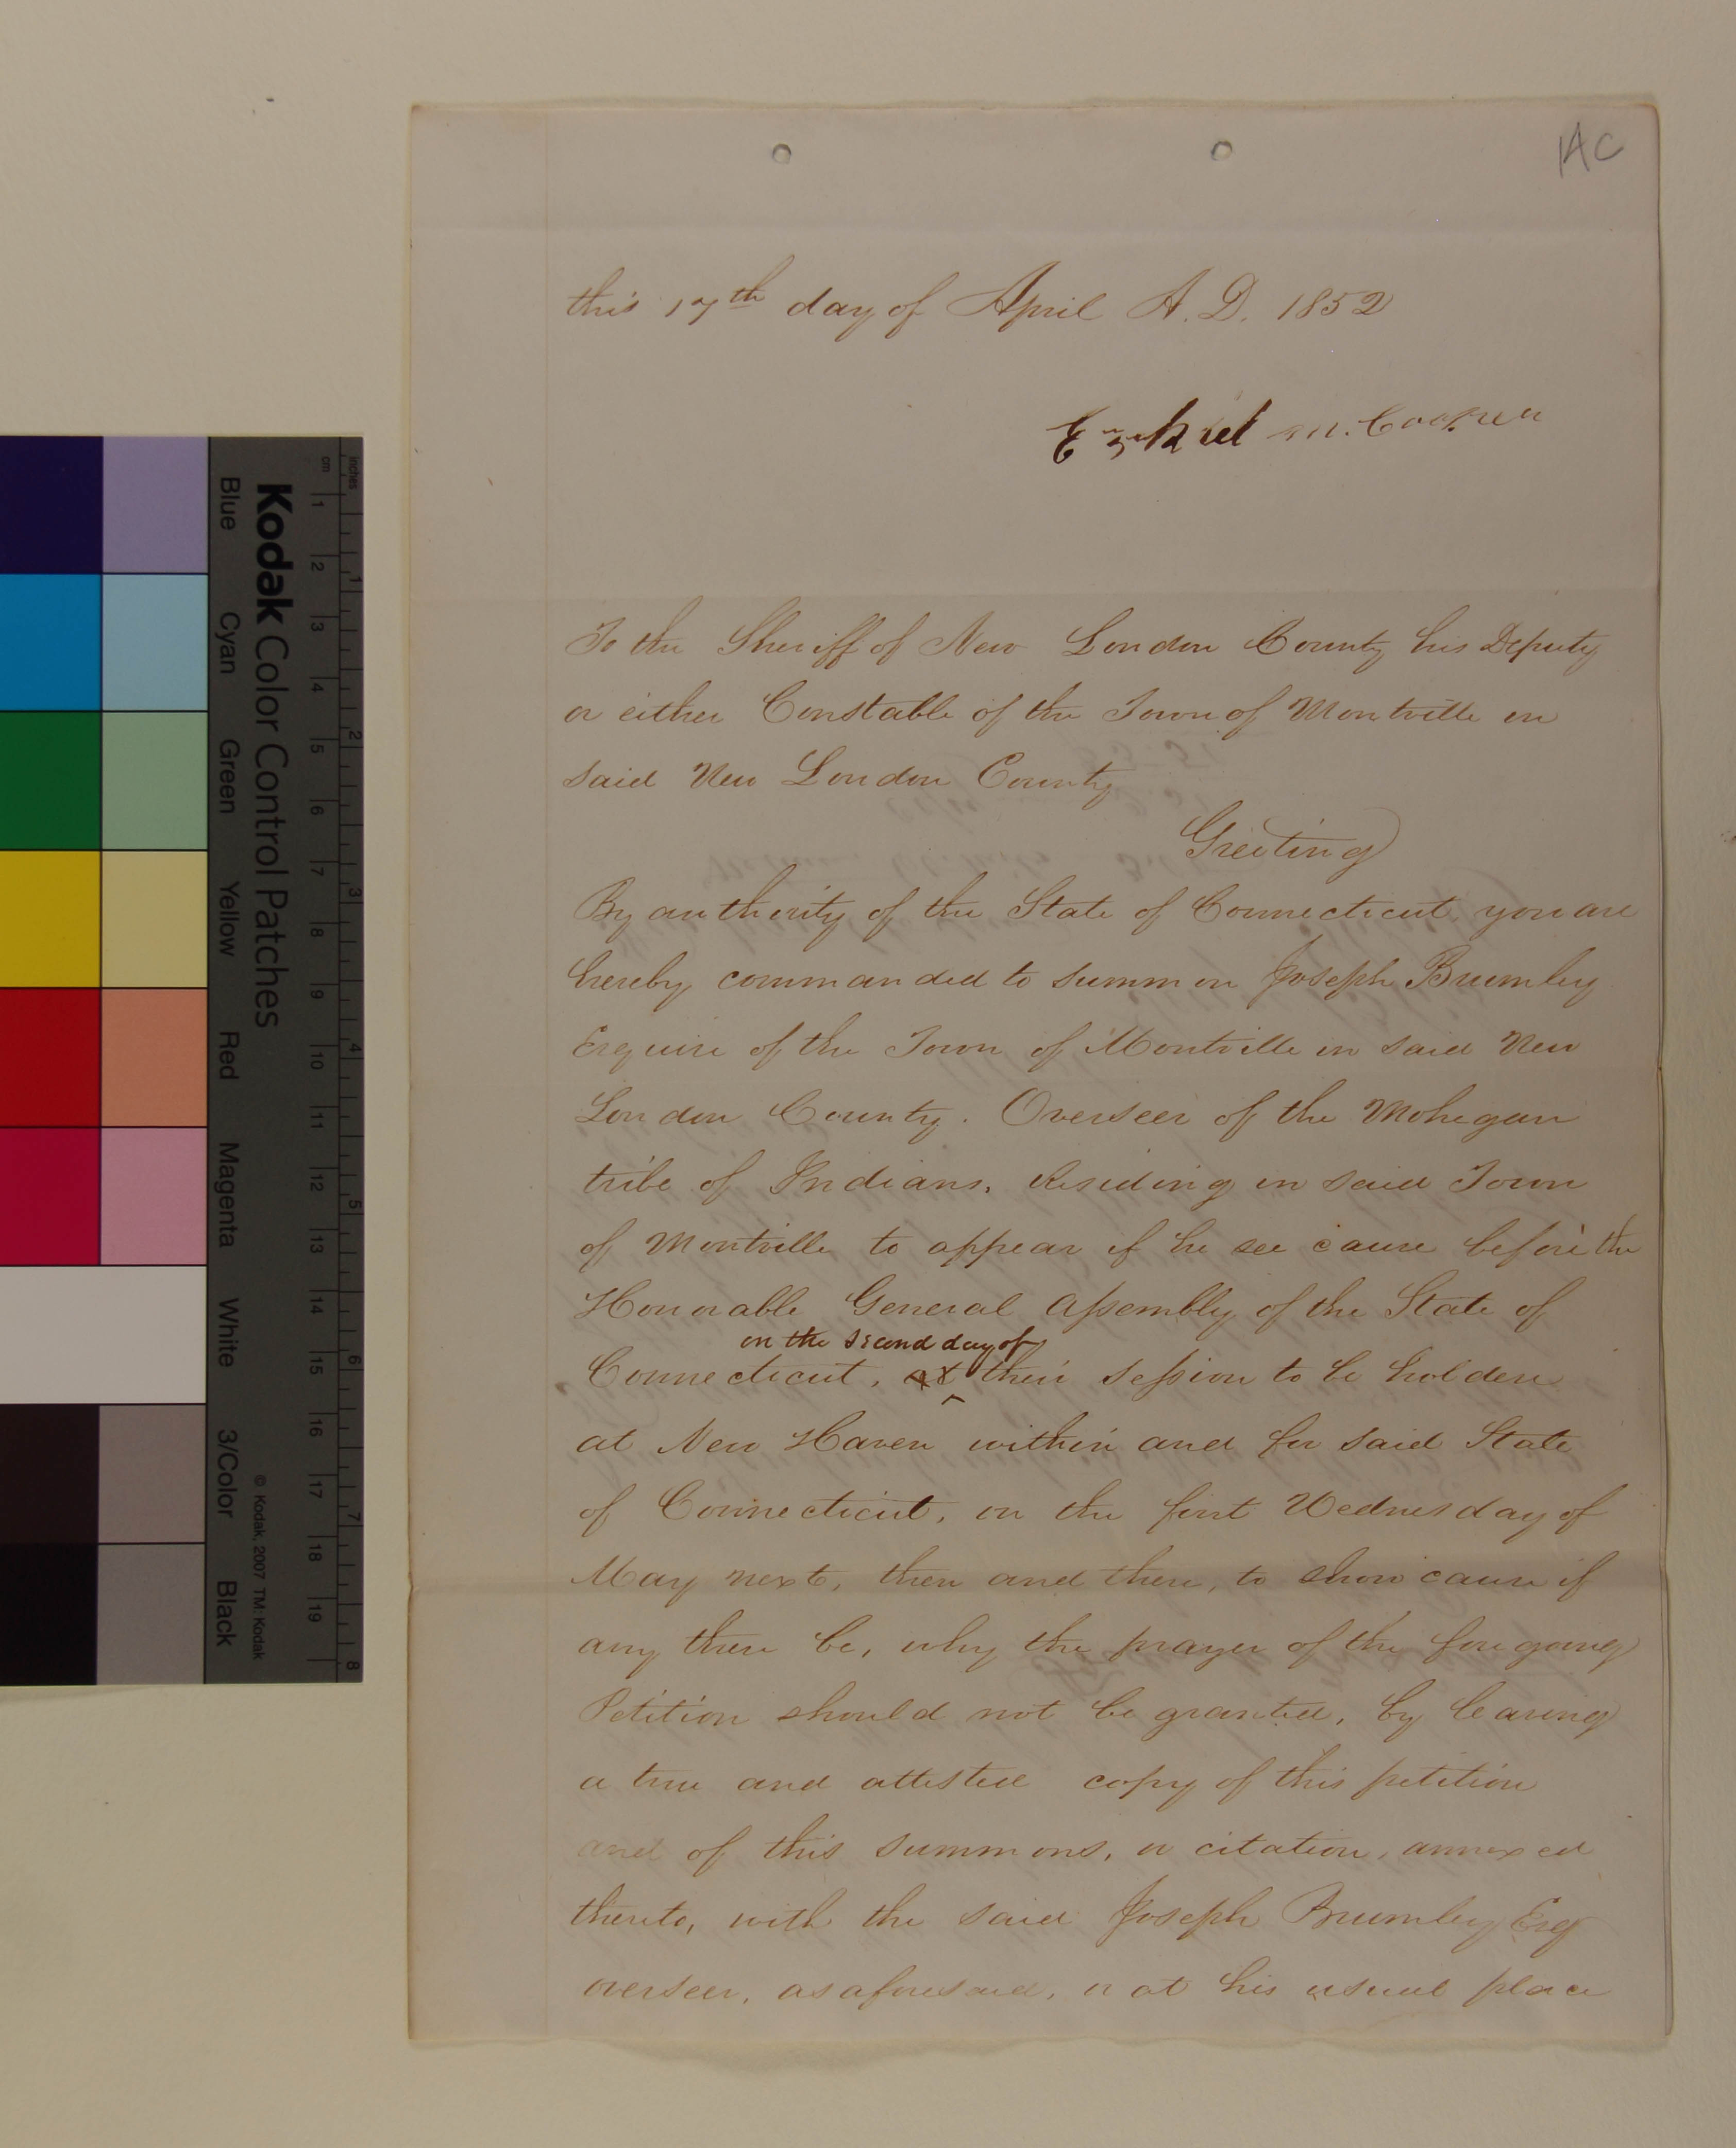 1AC
this 17th day of April A. D. 1852
Ezekiel M. Cooper
To the Sheriff of New London County his Deputy
or either Constable of the Town of Montville in
said New London County
Greeting
By authority of the State of Connecticut you are
hereby commanded to summon Joseph Brumley
Esquire of the Town of Montville in said New
London County. Overseer of the Mohegan
tribe of Indians, Residing in said Town
of Montville to appear if he see cause before the
Honorable General Assembly of the State of
on the second day of
Connecticut, at their session to be holden
at New Haven within and for said State
of Connecticut, on the first Wednesday of
May next, then and there, to show cause if
any there be, why the prayer of the foregoing
Petition should not be granted, by leaving
a true and attested copy of this petition
and of this summons, or citation, annexed
thereto, with the said Joseph Brumley Esq
overseer, as aforesaid, or at his usual place
Kodak Color Control Patches
Blue Cyan Green Yellow Red Magenta White 3/Color Black
© Kodak, 2007 TM: Kodak
inches 1 2 3 4 5 6 7 8
cm 1 2 3 4 5 6 7 8 9 10 11 12 13 14 15 16 17 18 19